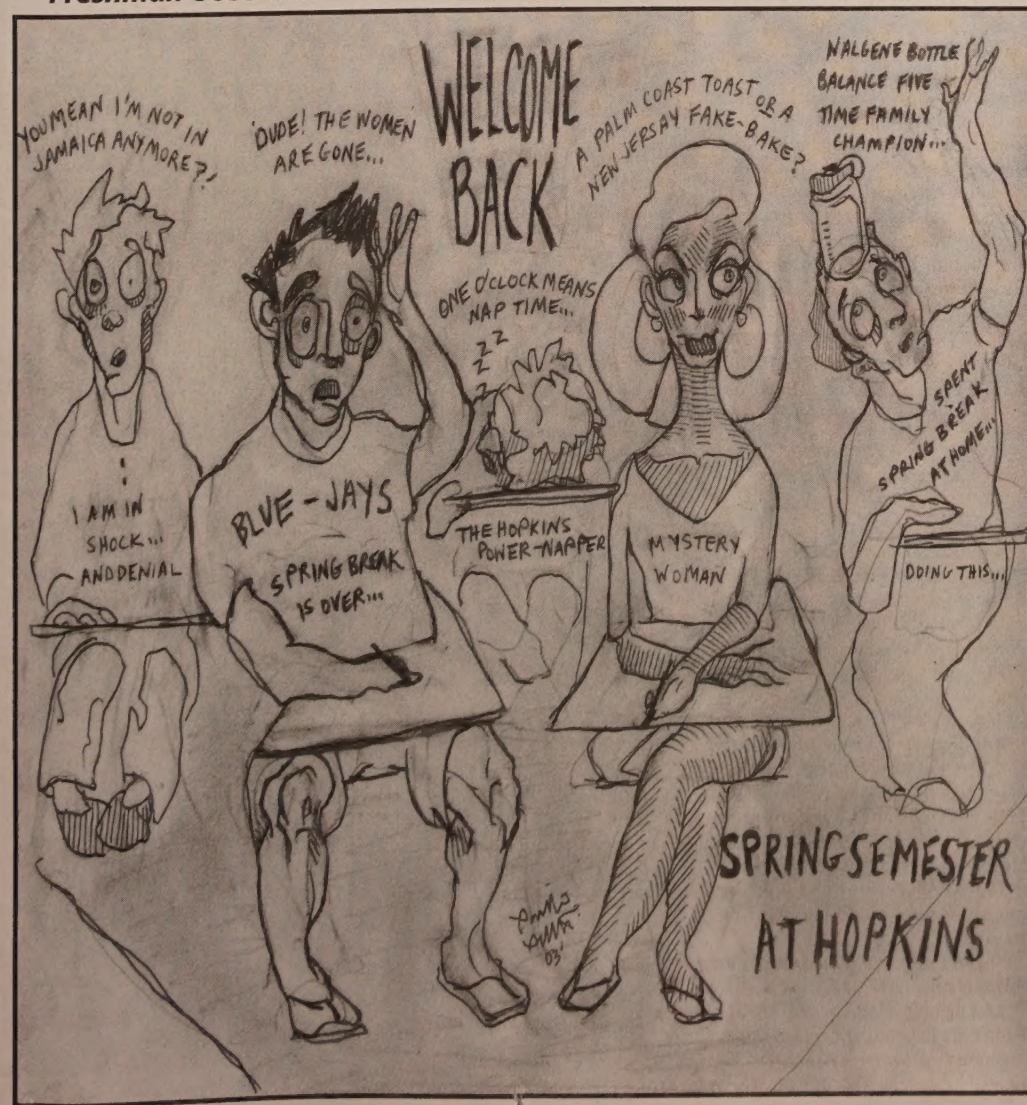 WELCOME
BACK
YOU MEAN I'M NOT IN
JAMAICA ANYMORE?!
'DUDE! THE WOMEN
ARE GONE...
A PALM COAST TOAST OR A
NEW JERSAY FAKE-BAKE?
NALGENE BOTTLE
BALANCE FIVE
TIME FAMILY
CHAMPION...
ONE O'CLOCK MEANS
NAP TIME...
ZZ
Z
Z
I AM IN
SHOCK...
AND DENIAL
BLUE-JAYS
SPRING BREAK
IS OVER...
THE HOPKINS
POWER-NAPPER
MYSTERY
WOMAN
SPENT
SPRING BREAK
AT HOME...
DOING THIS...
03'
SPRING SEMESTER
AT HOPKINS